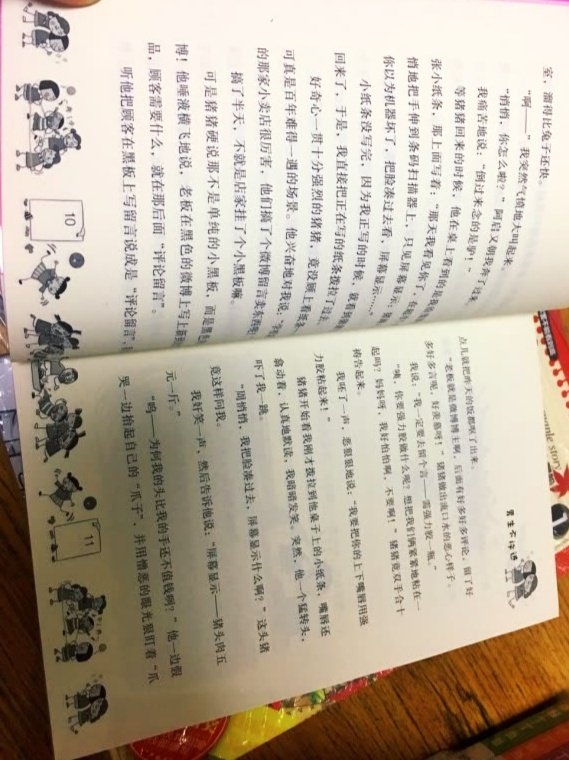 室，溜得比兔子还快。
“啊——”我突然气愤地大叫起来。
“悄悄，你怎么啦？”阿启又朝我奔了过来。
我痛苦地说：“倒过来念的是驴！”
等猪猪回来的时候，他在桌上看到的是我
张小纸条，那上面写着：“那天我看见你了，
悄地把手伸到条码扫描器上，只见屏幕显示：
你以为机器坏了，把脸凑过去看，屏幕显示……”
小纸条没写完，因为我正写的时候，就看到
回来了，于是，我直接把正在写的纸条拨拉了过去。
好奇心一贯十分强烈的猪猪，竟没顾上看纸条，
可真是百年难得一遇的场景。他兴奋地对我说，
的那家小卖店很厉害，他们搞了个微博留言卖东西
搞了半天，不就是店家挂了个小黑板嘛。
可是猪猪硬说那不是单纯的小黑板，而是黑
博！他唾液横飞地说，老板在黑色的微博上写上新
品，顾客需要什么，就在那后面“评论留言”。
听他把顾客在黑板上写留言说成是“评论留言”，
10
男生不许进
点儿就把昨天的饭都呕了出来。
“老板就是微博博主啊，后面有好多好多评论，留了好
多好多言呢，好羡慕呀！”猪猪做出流口水的恶心样子。
我说：“我一定要去留个言——需强力胶一瓶。”
“咦，你要强力胶做什么呢？想把我们俩紧紧地粘在一
起吗？妈妈呀，我好怕怕啊，不要啊！”猪猪竟双手合十
祷告起来。
我呸了一声，恶狠狠地说：“我要把你的上下嘴唇用强
力胶粘起来！”
猪猪开始看我刚才拨拉到他桌子上的小纸条，嘴唇还
翕动着，认真地默读，我暗暗发笑。突然，他一个猛转头，
吓了我一跳。
“周悄悄，我把脸凑过去，屏幕显示什么啊？”这头猪
竟这样问我。
我奸笑一声，然后告诉他说：“屏幕显示——猪头肉五
元一斤。”
“呜——为何我的头比我的手还不值钱啊？”他一边假
哭一边抬起自己的“爪子”，并用憎恶的眼光狠盯着“爪
11